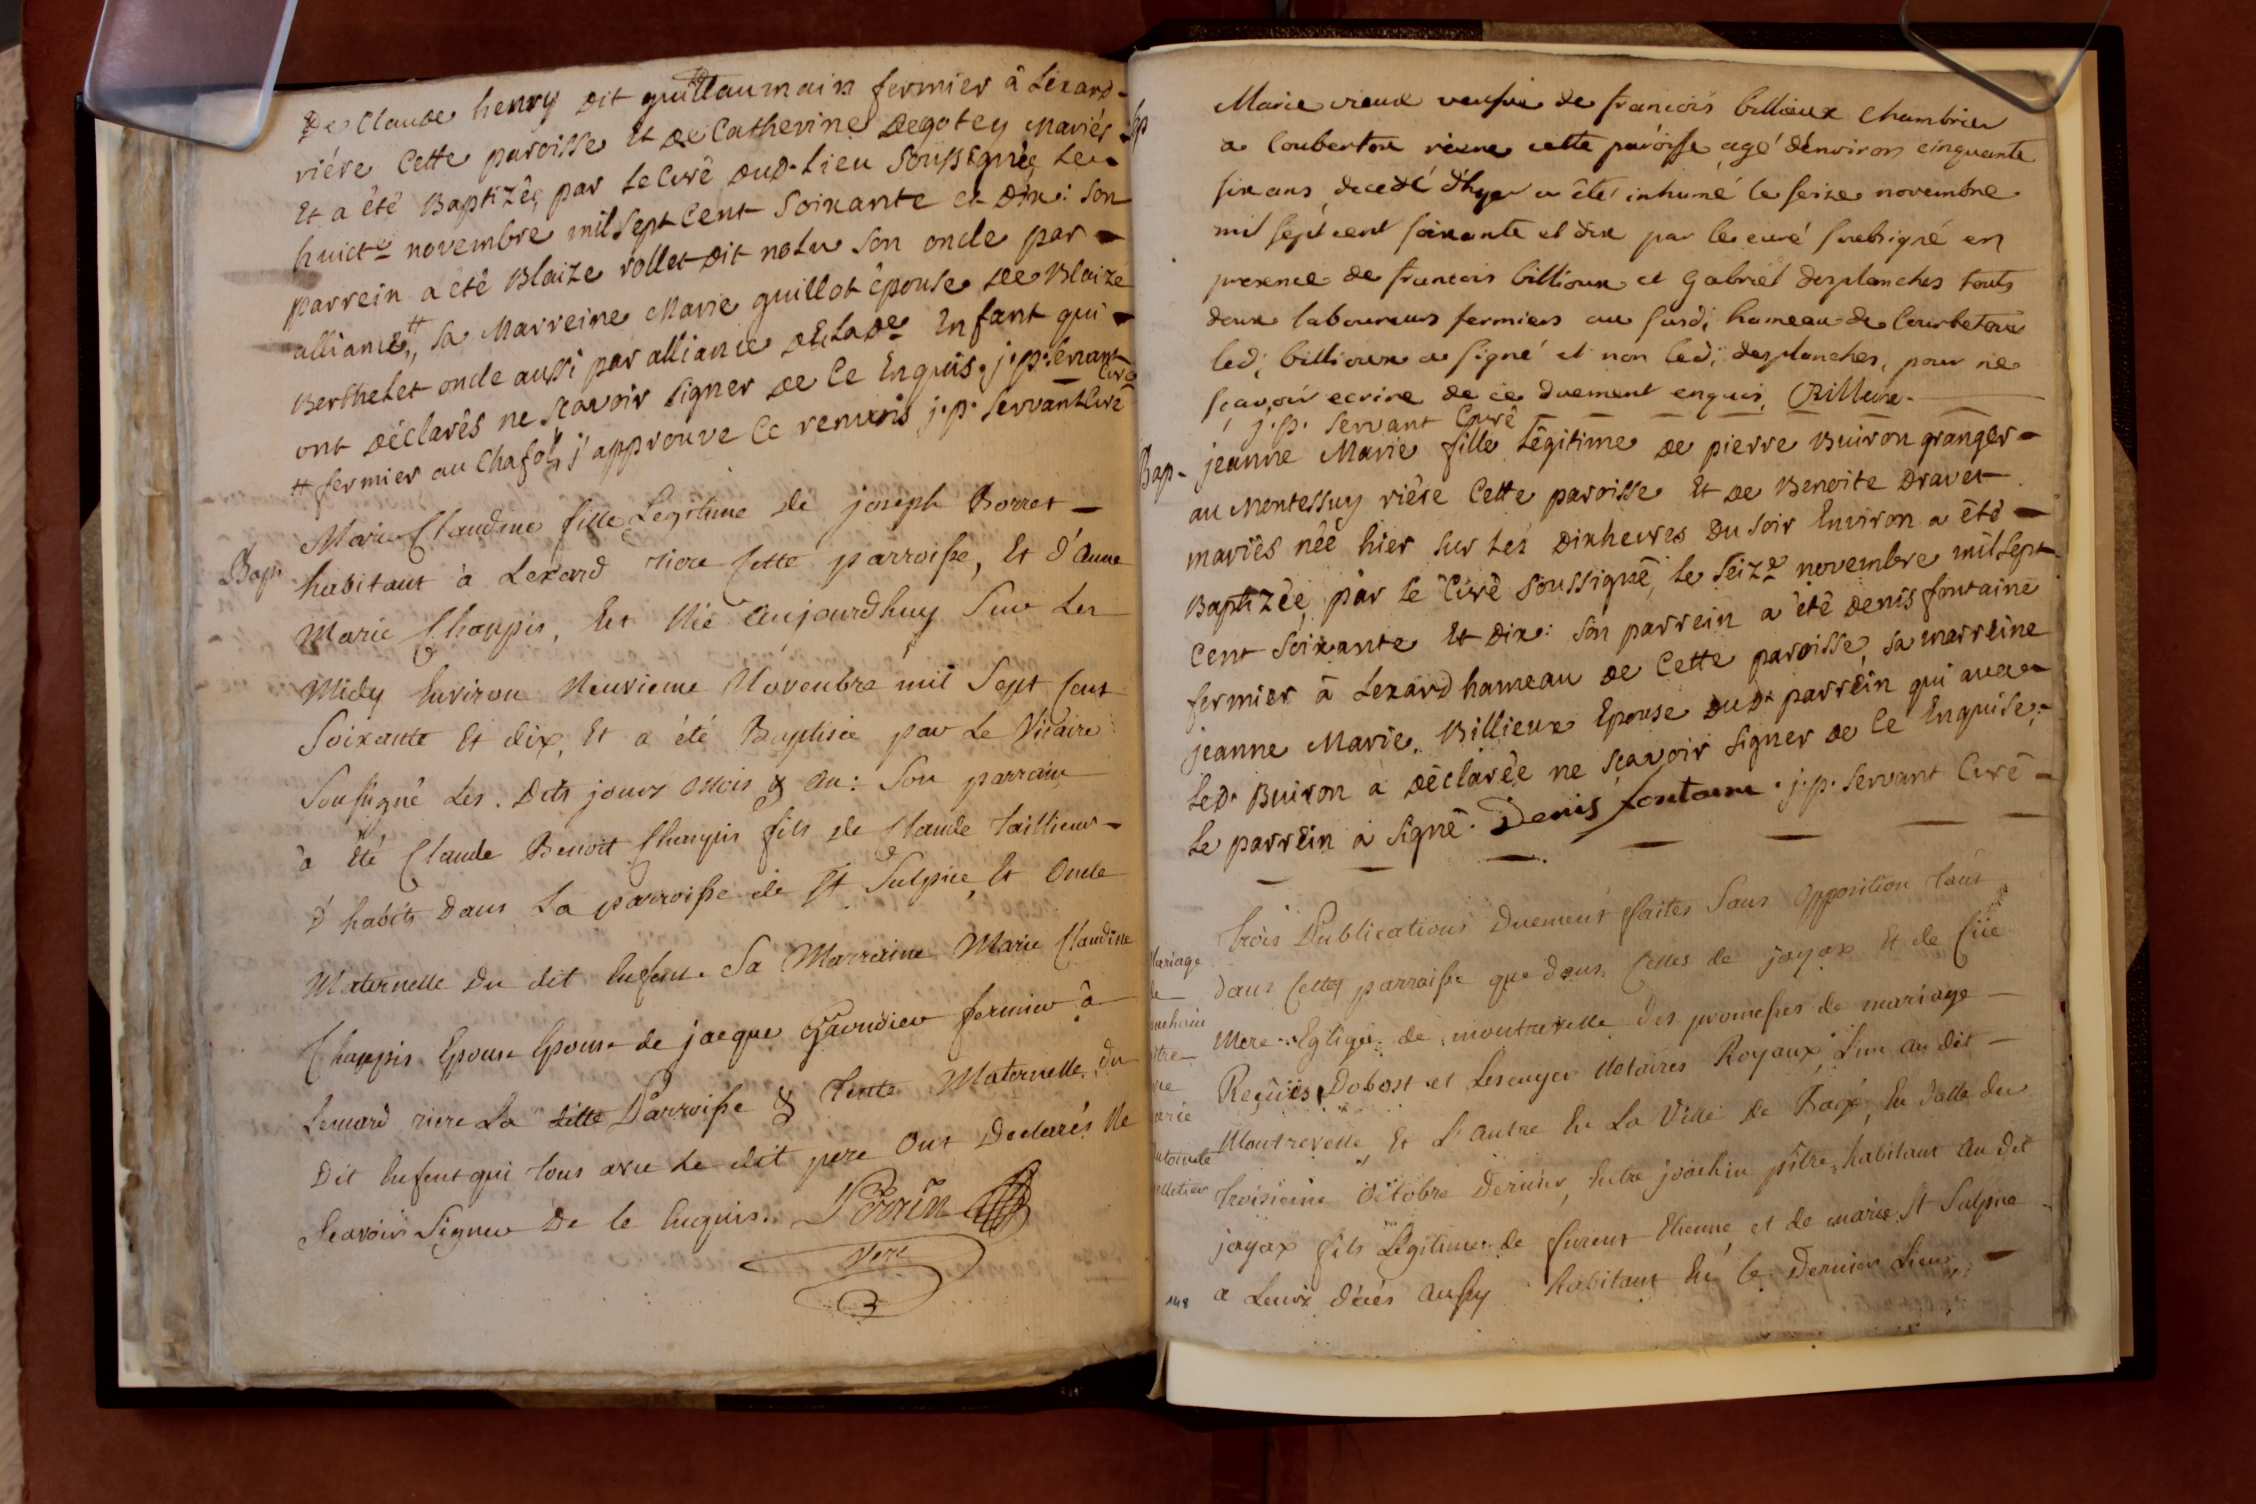 De Claude henry dit guillaumain fermier â Lexard
riére Cette paroisse Et de Catherine Degotey Mariés
Et a êtê Baptizêe par Le Curé dud. Lieu Soussignée Le
huict.e novembre mil Sept Cent Soixante et Dix: Son
parrein a êtê Blaize rollet dit nolu Son oncle par
alliance,, Sa Marreine Marie guillot êpouse de Blaize
Berthelet oncle aussi par alliance de Lad.e Enfant qui
ont Déclarés ne Sçavoir Signer de Ce Enquis. j.p. Servant
Curé
# fermier au Chafol j'approuve Ce renvris j.p. Servant Curé
Bap.
Marie Claudine fille Legitime de joseph Borret
habitant à Lexard riere Cette parroisse, Et d'anne
Marie Chanpis, Est Née Aujourdhuy Sur Les
Midy Environ Neuvieme Novenbre mil Sept Cent
Soixante Et dix, Et a été Baptisée par Le Vicaire
Soussigné Les Dits jours Mois & An: Son parrain
à été Claude Benoit Chanpis fils de Claude taillieur
d'habits Dans La parroisse de St Sulpice Et Oncle
Maternelle Du dit Enfent. Sa Marraine Marie Claudine
Chanpis Epouse Epouse de jacque Gaundier fermier â
Lemard riere La ditte Parroisse & tente Maternelle du
Dit Enfent qui tous avec Le dit pere Ont Declarés Ne
Scavoir Signer De Ce Enquis. Perrin
Vere
Marie vieux veufve de francois billioux Chambrier
a Couberton riere cette paroisse agé d'environ cinquante
six ans, decedé d'hyer a êté inhumé le seize novembre
mil sept cent soixante et dix par le curé soubsigné en
presence de francois billioux et Gabriel desplanches touts
deux laboureurs fermiers au susd: hameau de Courbeton
led: billioux a signé et non led: desplanches, pour ne
scavoir ecrire de ce duement enquis, Billieux.
j.p. Servant Curé
Bap.
jeanne Marie fille Lêgitime de pierre Buiron granger
au Montessuy riêre Cette paroisse Et de Benoite Dravet
mariês nêê hier sur Les Dixheures Du Soir Environ a êtê
Baptizêe par Le Curê Soussignê, Le Seiz.e novembre mil Sept
Cent Soixante Et Dix: Son parrein a êtê Denis fontaine
fermier â Lexard hameau de Cette paroisse, Sa marreine
jeanne Marie Billieux Epouse dud.t parrein qui avec
Led. Buiron a dêclarêe ne Sçavoir Signer de Ce Enquise,
Le parrein a Signê. Denis fontaine. j.p. Servant Curê
Trois Publications Duement faites Sans Opposition tant
dans Cette parroisse que dans Celles de jayax Et de
Mere Eglige de montrevelle des promesses de mariage
Reçuës Dobost et Lescuyer Notaires Royaux, L'un au dit
Montrevelle, Et L'autre En La Ville de Bagé, En datte du
troisieme Octobre Dernier, Entre joachin pitre habitant Au Dit
jayax fils Légitime de furent Etienne et de marie St Sulpice
a Leurs décés Aussy habitant En Ce Dernier Lieux,
148